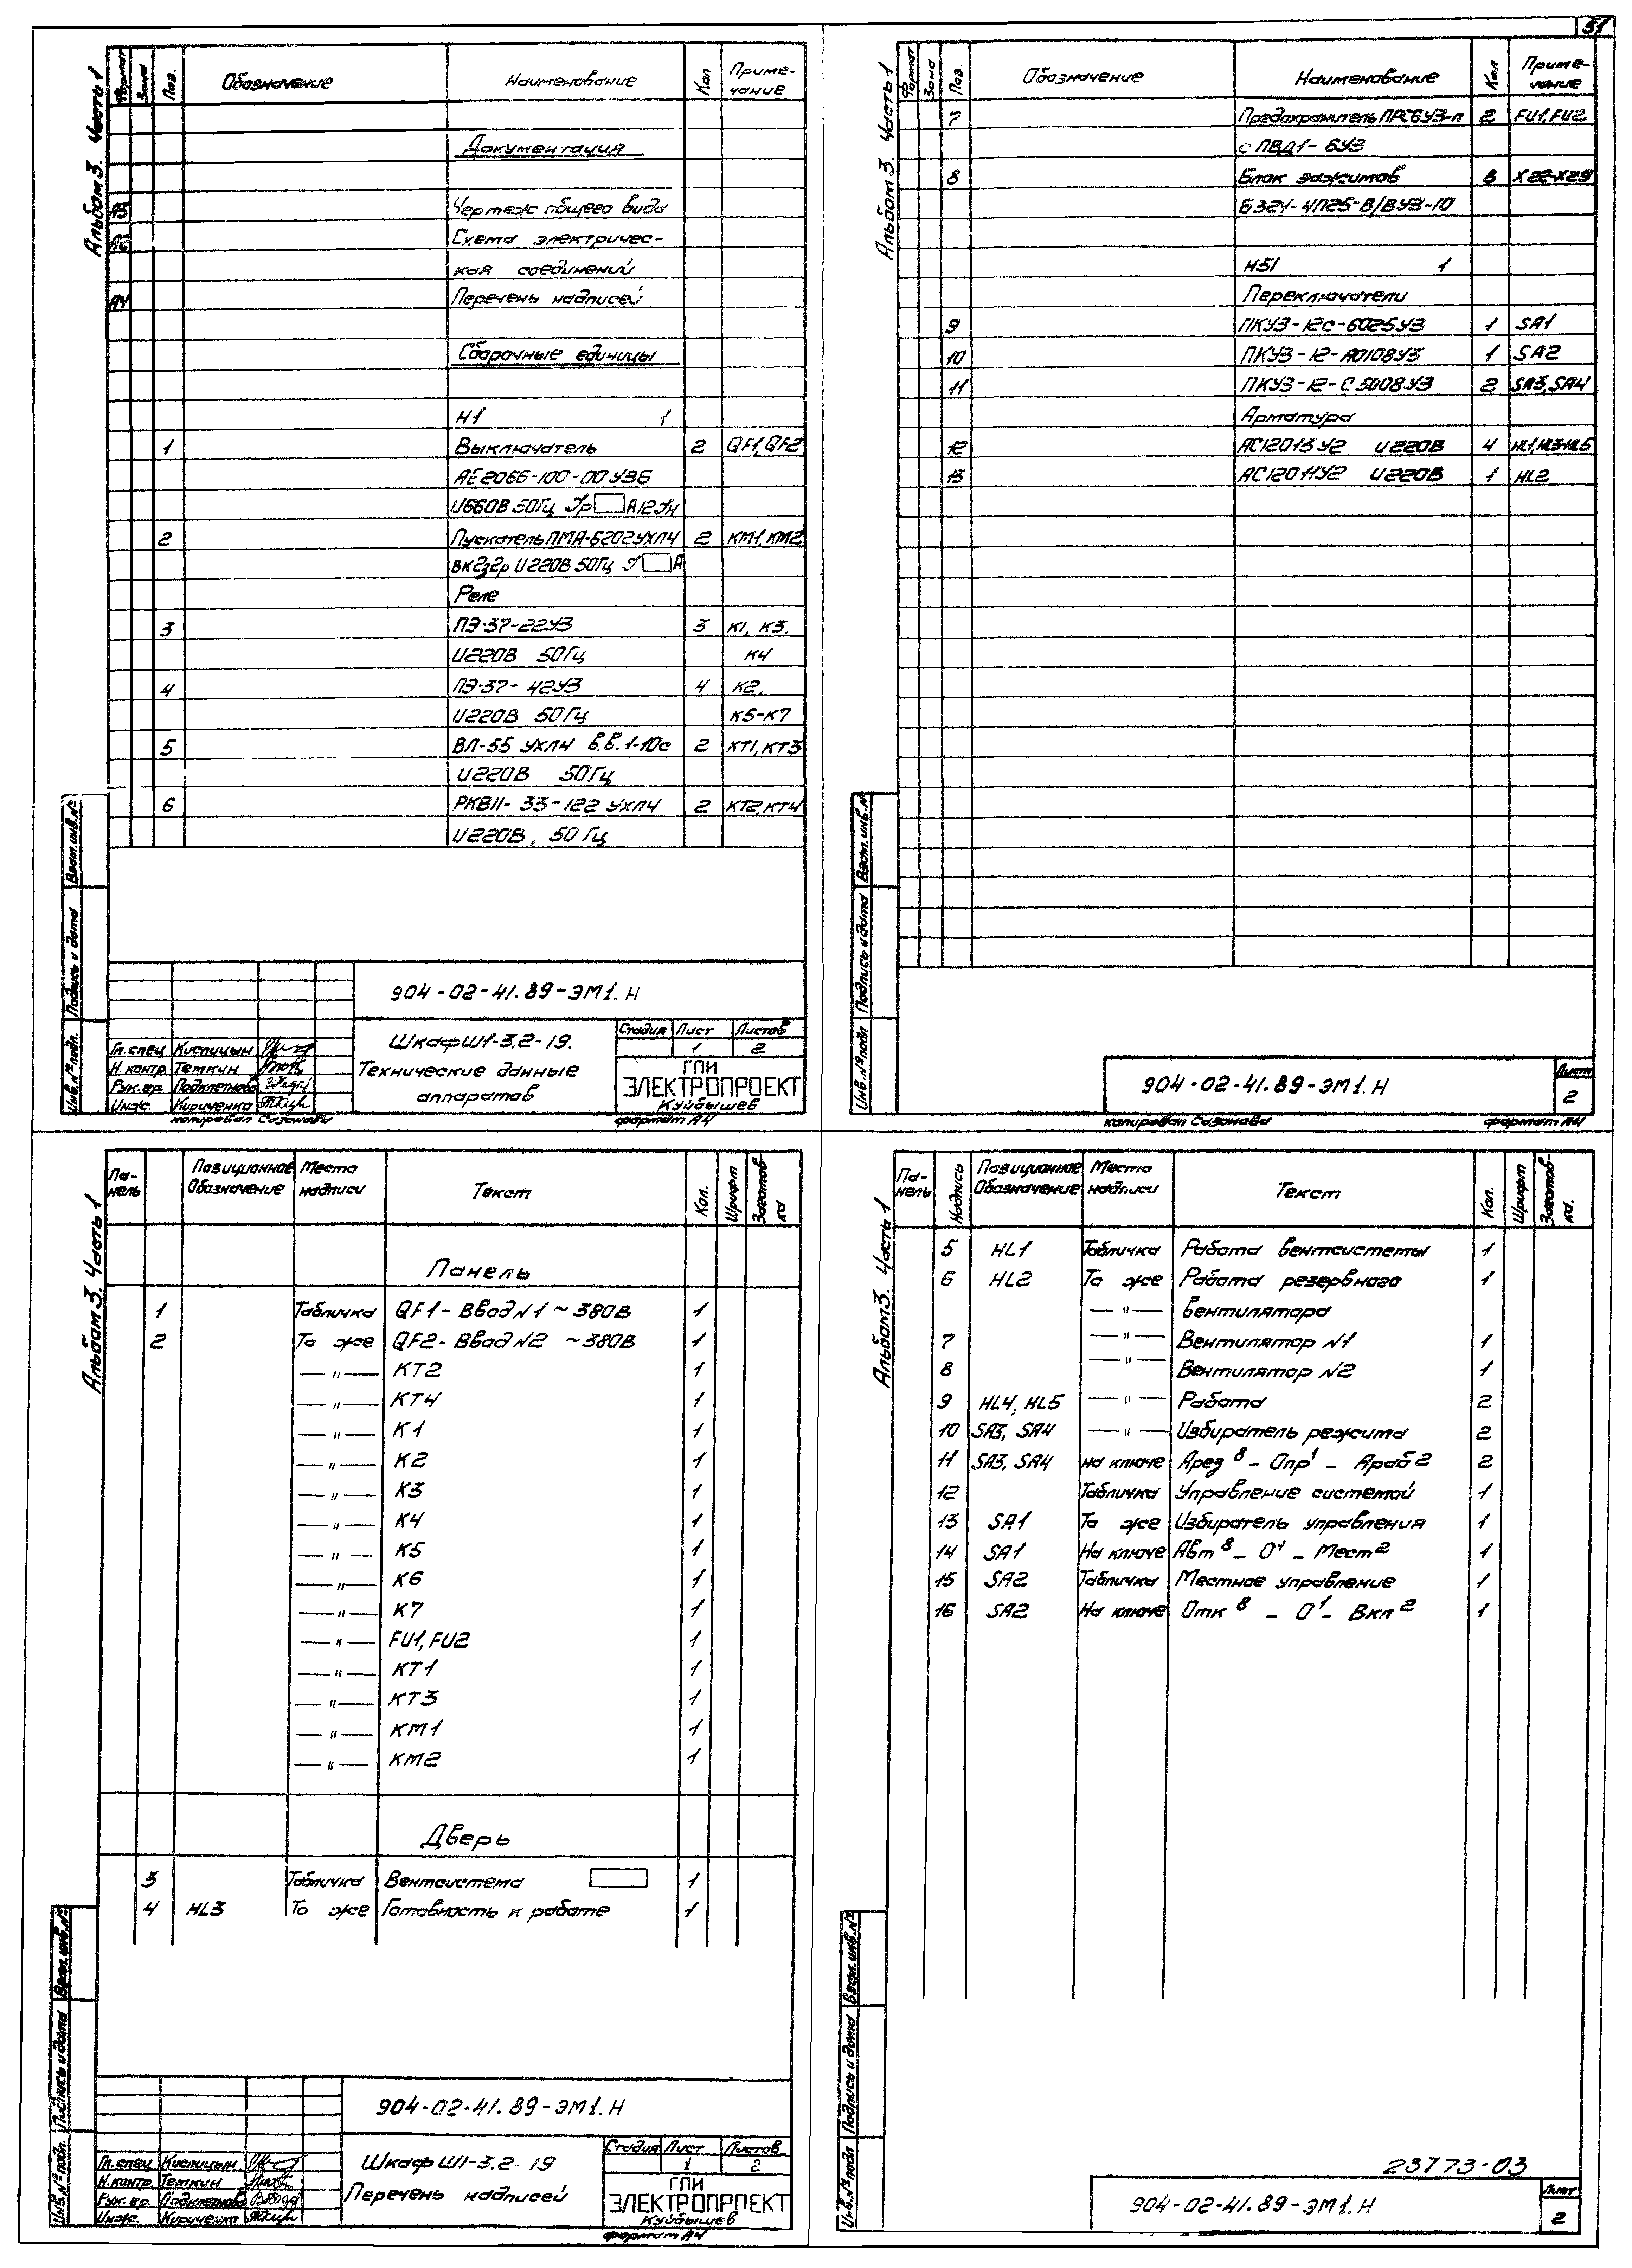 51
Альбом 3. Часть 1
Формат Зона Поз. Обозначение Наименование Кол Приме-
чание
Документация
А3 Чертеж общего вида
Схема электричес-
кая соединений
А4 Перечень надписей
Сборочные единицы
Н1 1
1 Выключатель 2 QF1, QF2
АЕ2066-100-00 УЗБ
U660В 50Гц Iр А12Iн
2 Пускатель ПМА-6202УХЛ4 2 КМ1, КМ2
вк2з2р U220В 50Гц I А
Реле
3 ПЭ-37-22УЗ 3 К1, К3,
U220В 50Гц К4
4 ПЭ-37-42УЗ 4 К2,
U220В 50Гц К5-К7
5 ВЛ-55 УХЛ4 в.в. 1-10с 2 КТ1, КТ3
U220В 50Гц
6 РКВ11-33-122 УХЛ4 2 КТ2, КТ4
U220В, 50 Гц
Инв.№ подл. Подпись и дата Взам. инв.№
904-02-41.89-ЭМ1.Н
Шкаф Ш1-3.2-19.
Технические данные
аппаратов
Стадия Лист Листов
1 2
ГПИ
ЭЛЕКТРОПРОЕКТ
Куйбышев
Гл. спец Кислицын
Н. контр. Темкин
Рук. гр. Подклетнова
Инж. Кириченко
копировал Сазонова формат А4
Альбом 3. Часть 1
Формат Зона Поз. Обозначение Наименование Кол Приме-
чание
7 Предохранитель ПРС6УЗ-П 2 FU1, FU2
с ПВД1-6УЗ
8 Блок зажимов 8 Х22-Х29
Б324-4П25-В/ВУЗ-10
Н51 1
Переключатели
9 ПКУЗ-12С-6025УЗ 1 SA1
10 ПКУЗ-12-А0108УЗ 1 SA2
11 ПКУЗ-12-С5008УЗ 2 SA3, SA4
Арматура
12 АС12013У2 U220В 4 HL1, HL3-HL5
13 АС12011У2 U220В 1 HL2
Инв.№ подл Подпись и дата Взам. инв.№
904-02-41.89-ЭМ1.Н
Лист
2
копировал Сазонова формат А4
Альбом 3. Часть 1
Па-
нель Позиционное
Обозначение Место
надписи Текст Кол. Шрифт Заготов-
ка
Панель
1 Табличка QF1- Ввод N1 ~ 380В 1
2 То же QF2- Ввод N2 ~ 380В 1
— " — КТ2 1
— " — КТ4 1
— " — К1 1
— " — К2 1
— " — К3 1
— " — К4 1
— " — К5 1
— " — К6 1
— " — К7 1
— " — FU1, FU2 1
— " — КТ1 1
— " — КТ3 1
— " — КМ1 1
— " — КМ2 1
Дверь
3 Табличка Вентсистема 1
4 HL3 То же Готовность к работе 1
Инв.№ подл. Подпись и дата Взам. инв.№
904-02-41.89-ЭМ1.Н
Шкаф Ш1-3.2-19
Перечень надписей
Стадия Лист Листов
1 2
ГПИ
ЭЛЕКТРОПРОЕКТ
Куйбышев
Гл. спец Кислицын
Н. контр. Темкин
Рук. гр. Подклетнова
Инж. Кириченко
формат А4
Альбом 3. Часть 1
Па-
нель Надпись Позиционное
Обозначение Место
надписи Текст Кол. Шрифт Заготов-
ка.
5 HL1 Табличка Работа вентсистемы 1
6 HL2 То же Работа резервного 1
— " — вентилятора
7 — " — Вентилятор N1 1
8 — " — Вентилятор N2 1
9 HL4, HL5 — " — Работа 2
10 SA3, SA4 — " — Избиратель режима 2
11 SA3, SA4 на ключе Арез 8 - Опр 1 - Араб 2 2
12 Табличка Управление системой 1
13 SA1 То же Избиратель управления 1
14 SA1 На ключе Авт 8 - О 1 - Мест 2 1
15 SA2 Табличка Местное управление 1
16 SA2 На ключе Отк 8 - О 1 - Вкл 2 1
Инв.№ подл Подпись и дата Взам. инв.№
23773-03
904-02-41.89-ЭМ1.Н
Лист
2